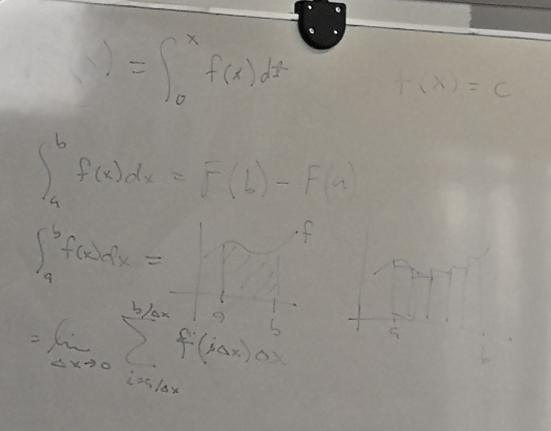 ) = ∫₀ˣ f(x)dt
f(x) = c
∫ₐᵇ f(x)dx = F(b) - F(a)
∫ₐᵇ f(x)dx =
f
a b
a b
= lim Δx→0 ∑ i=a/Δx b/Δx f(iΔx)Δx